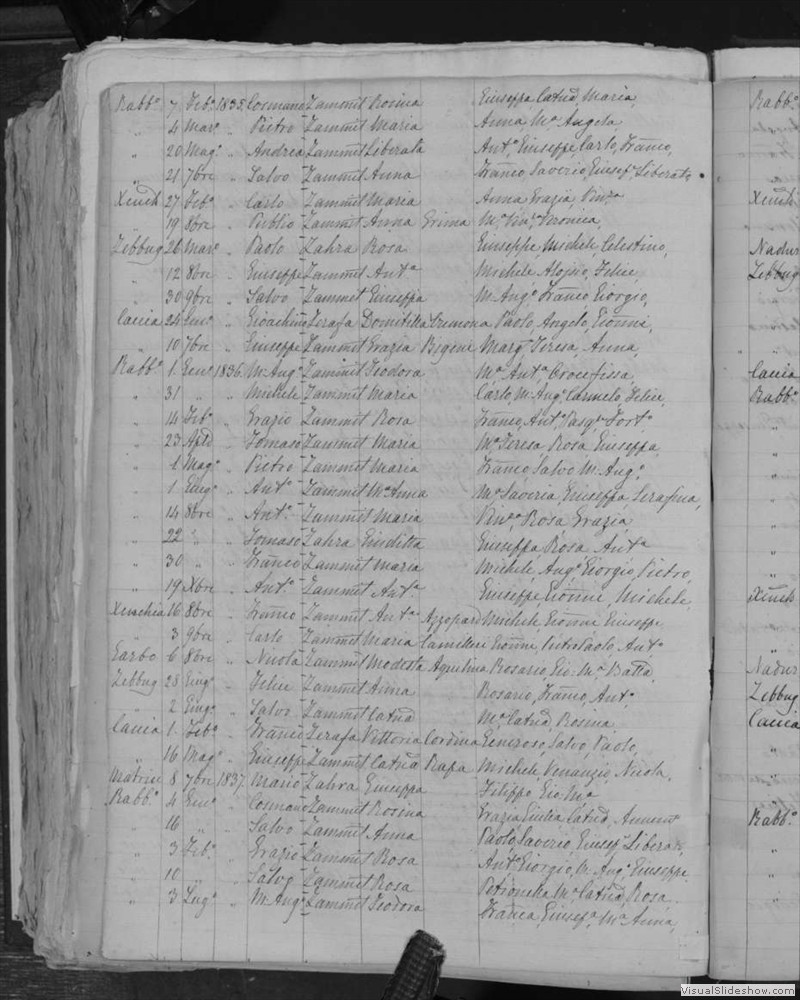 Rabb.o 7 Feb.o 1835. Cosmano Zammit Rosina Giuseppa, Catnd, Maria,
" 4 Mar.o " Pietro Zammit Maria Anna M.a Angela
" 20 Mag.o " Andrea Zammit Liberata Ant.o, Giuseppe, Carlo, Franco,
" 21 7bre " Salvo Zammit Anna Franco Saverio, Giusep.e Liberato
Xeuch 27 Feb.o " Carlo Zammit Maria Anna Grazia Vin.a
" 19 8bre " Publio Zammit Anna Grima M.a Vin.a Veronica,
Zebbug 26 Mar.o " Paolo Zahra Rosa Giuseppe, Michele, Celestino,
" 12 8bre " Giuseppe Zammit Ant.a Michele Felice,
" 30 9bre " Salvo Zammit Giuseppa M. Ang.o Franco Giorgio,
Caccia 24 Gen.o " Gioachino Zerafa Domitilla Cremona Paolo, Angelo, Gionni,
" 10 7bre " Giuseppe Zammit Grazia Bigeni Marg.a Teresa, Anna,
Rabb.o 1 Gen.o 1836. M. Ang.o Zammit Teodora M.a Ant.a Crocefissa,
" 31 " " Michele Zammit Maria Carlo, M. Ang.o Carmelo, Felice,
" 14 Feb.o " Grazio Zammit Rosa Franco, Ant.o Pasq.e Fort.o
" 23 Aple " Tomaso Zammit Maria M.a Teresa Rosa Giuseppa
" 1 Mag.o " Pietro Zammit Maria Franco, Salvo M. Ang.o
" 1 Giug.o " Ant.o Zammit M.a Anna M.a Saveria, Giuseppa, Serafina,
" 14 8bre " Ant.o Zammit Maria Vin.a Rosa Grazia
" 22 " " Tomaso Zahra Giuditta Giuseppa Rosa Ant.a
" 30 " " Franco Zammit Maria Michele, Ang.o Giorgio, Pietro,
" 19 Xbre " Ant.o Zammit Ant.a Giuseppe, Gionni, Michele,
Xeuchia 16 8bre " Franco Zammit Ant.a Azzopardi Michele, Gionni Giuseppe
" 3 9bre " Carlo Zammit Maria Camilleri Gionni, Pietro Paolo, Ant.o
Garbo 6 8bre " Nicola Zammit Modesta Aquilina Rosario, Gio. M.a Batta,
Zebbug 28 Giug.o " Felice Zammit Anna Rosario, Franco, Ant.o
" 2 Giug.o " Salvo Zammit Catnd M.a Catnd, Rosina
Caccia 1 Feb.o " Franco Zerafa Vittoria Cordina Generoso, Salvo, Paolo,
" 16 Mag.o " Giuseppe Zammit Catna Rapa Michele, Venanzio, Nicola,
Matrice 8 7bre 1837. Mario Zahra Giuseppa Filippo Gio. M.a
Rabb.o 4 Gen.o " Cosmano Zammit Rosina Grazia, Giulia Catnd,
" 16 " " Salvo Zammit Anna Paolo, Saverio, Giusep.e Liberato,
" 3 Feb.o " Grazio Zammit Rosa Ant.o Giorgio, M. Ang.o Giuseppe
" 10 " " Salvo Zammit Rosa Petronilla M.a Catnd, Rosa,
" 3 Lug.o " M. Ang.o Zammit Teodora Franca, Giusep.a M.a Anna,
Rabb.o
Xeuch
Nadur
Zebbug
Caccia
Rabb.o
Xeuch
Nadur
Zebbug
Caccia
Rabb.o
VisualSlideshow.com